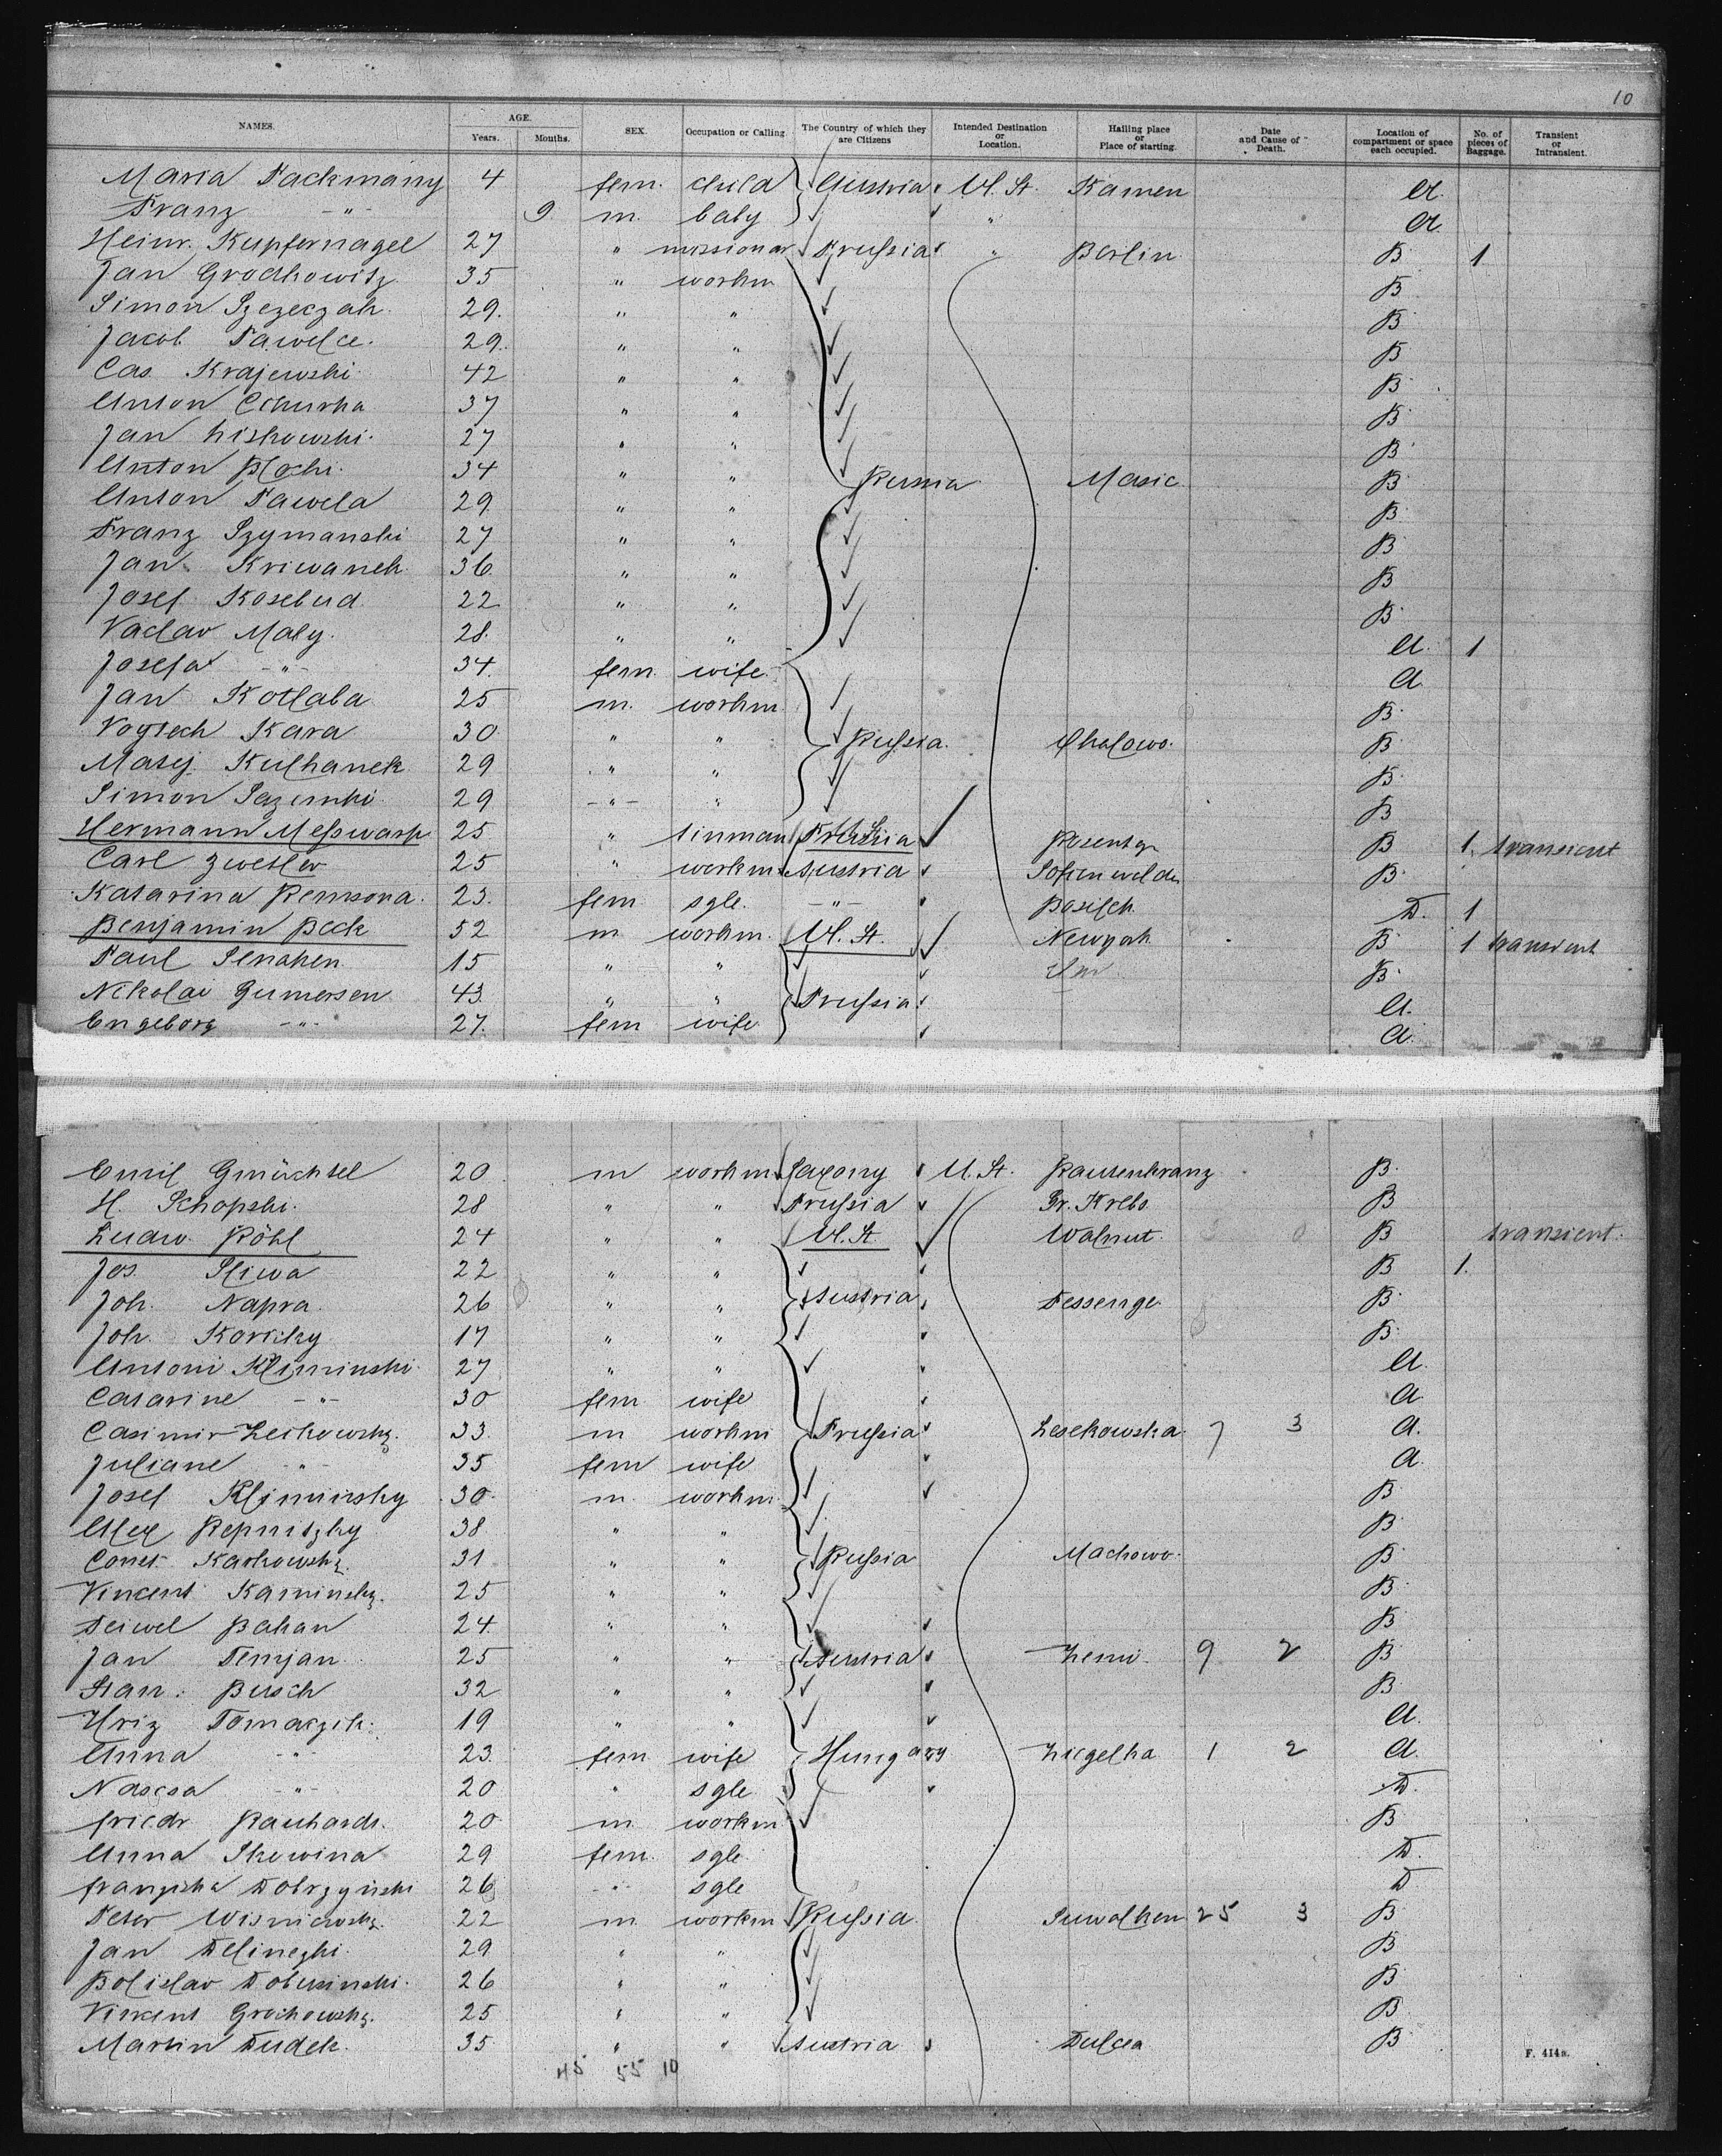 10
NAMES. AGE. Years. Months. SEX. Occupation or Calling The Country of which they are Citizens Intended Destination or Location. Hailing place or Place of starting. Date and Cause of Death. Location of compartment or space each occupied. No. of pieces of Baggage. Transient or Intransient.
Maria Packmany 4 fem. child Austria U. St. Kamen A.
Franz -"- 9 m. baby " A.
Heinr. Kupfernagel 27 " missionar Prussia " Berlin B. 1
Jan Grochowitz 35 " workm B.
Simon Szezeczak 29. " " B.
Jacob Pawelce. 29. " " B.
Cas. Krajewski 42 " " B.
Anton 37 " " B.
Jan Liskowski. 27 " " B.
Anton Plochi. 34 " " Russia Masic B.
Anton Pawela 29. " " B.
Franz Szymanski 27 " " B.
Jan Kriwanek 36. " " B.
Josef Kosebud 22 " " B.
Vaclav Maly. 28. " " A. 1
Josefa -"- 34. fem. wife A.
Jan Kotlaba 25 m. workm. B.
Voytech Kara 30 " " Russia. Chalowo. B.
Masej Kulhanek 29 " " B.
Simon 29 -"- " B.
Hermann 25 " tinman U. St. B 1. transient
Carl Zwetler 25 " workm Austria B.
Katarina Remsova. 23. fem. sgle. -"- D. 1
Benjamin Beck 52 m. workm. U. St. Newyork B. 1 transient
Paul 15 " " B.
Nikolai 43. " " Prussia A.
Engeborg -"- 27. fem wife A.
Emil Gmüchtel 20 m workm Saxony U. St. Rautenkranz B.
H. Schopski. 28 " " Prussia Gr. Krebs B
Ludw. Röhl 24 " " U. St. Walnut. B transient.
Jos. Sliwa 22 " " B 1.
Joh. Napra. 26 " " Austria Dessenge B.
Joh. Koricky 17 " " B.
Antoni Kliminski. 27 " " A.
Catarine -"- 30 fem wife A.
Casimir Leskowsky. 33. m workm Prussia Lesekowska 7 3 A.
Juliane -"- 35 fem wife A.
Josef Kliminsky 30. m. workm. B.
Alex Repnitzky 38 " " B.
Const. Karkowsky. 31 " " Russia Machowo. B.
Vincent Kaminsky. 25 " " B.
Deiwel Bahan 24 " " B.
Jan 25 " " Austria 9 2 B
Stan. Busch 32 " " B.
Tomaczik. 19 " " A.
Anna -"- 23. fem wife Hungary Ziegelka 1 2 A.
-"- 20 " sgle D.
Friedr. Rauhardt. 20. m. workm B
Anna Skowina 29 fem. sgle D.
Franziska Dobrzynski 26 -"- sgle D
Peter Wisniewsky. 22 m. workm Russia Suwalken 25 3 B
Jan 29 " " B
Bolislav Dobusinski. 26 " " B.
Vinkent Grochowsky. 25 " " B.
Martin Dudek. 35 " " Austria Dulcea B.
45 55 10
F. 414a.